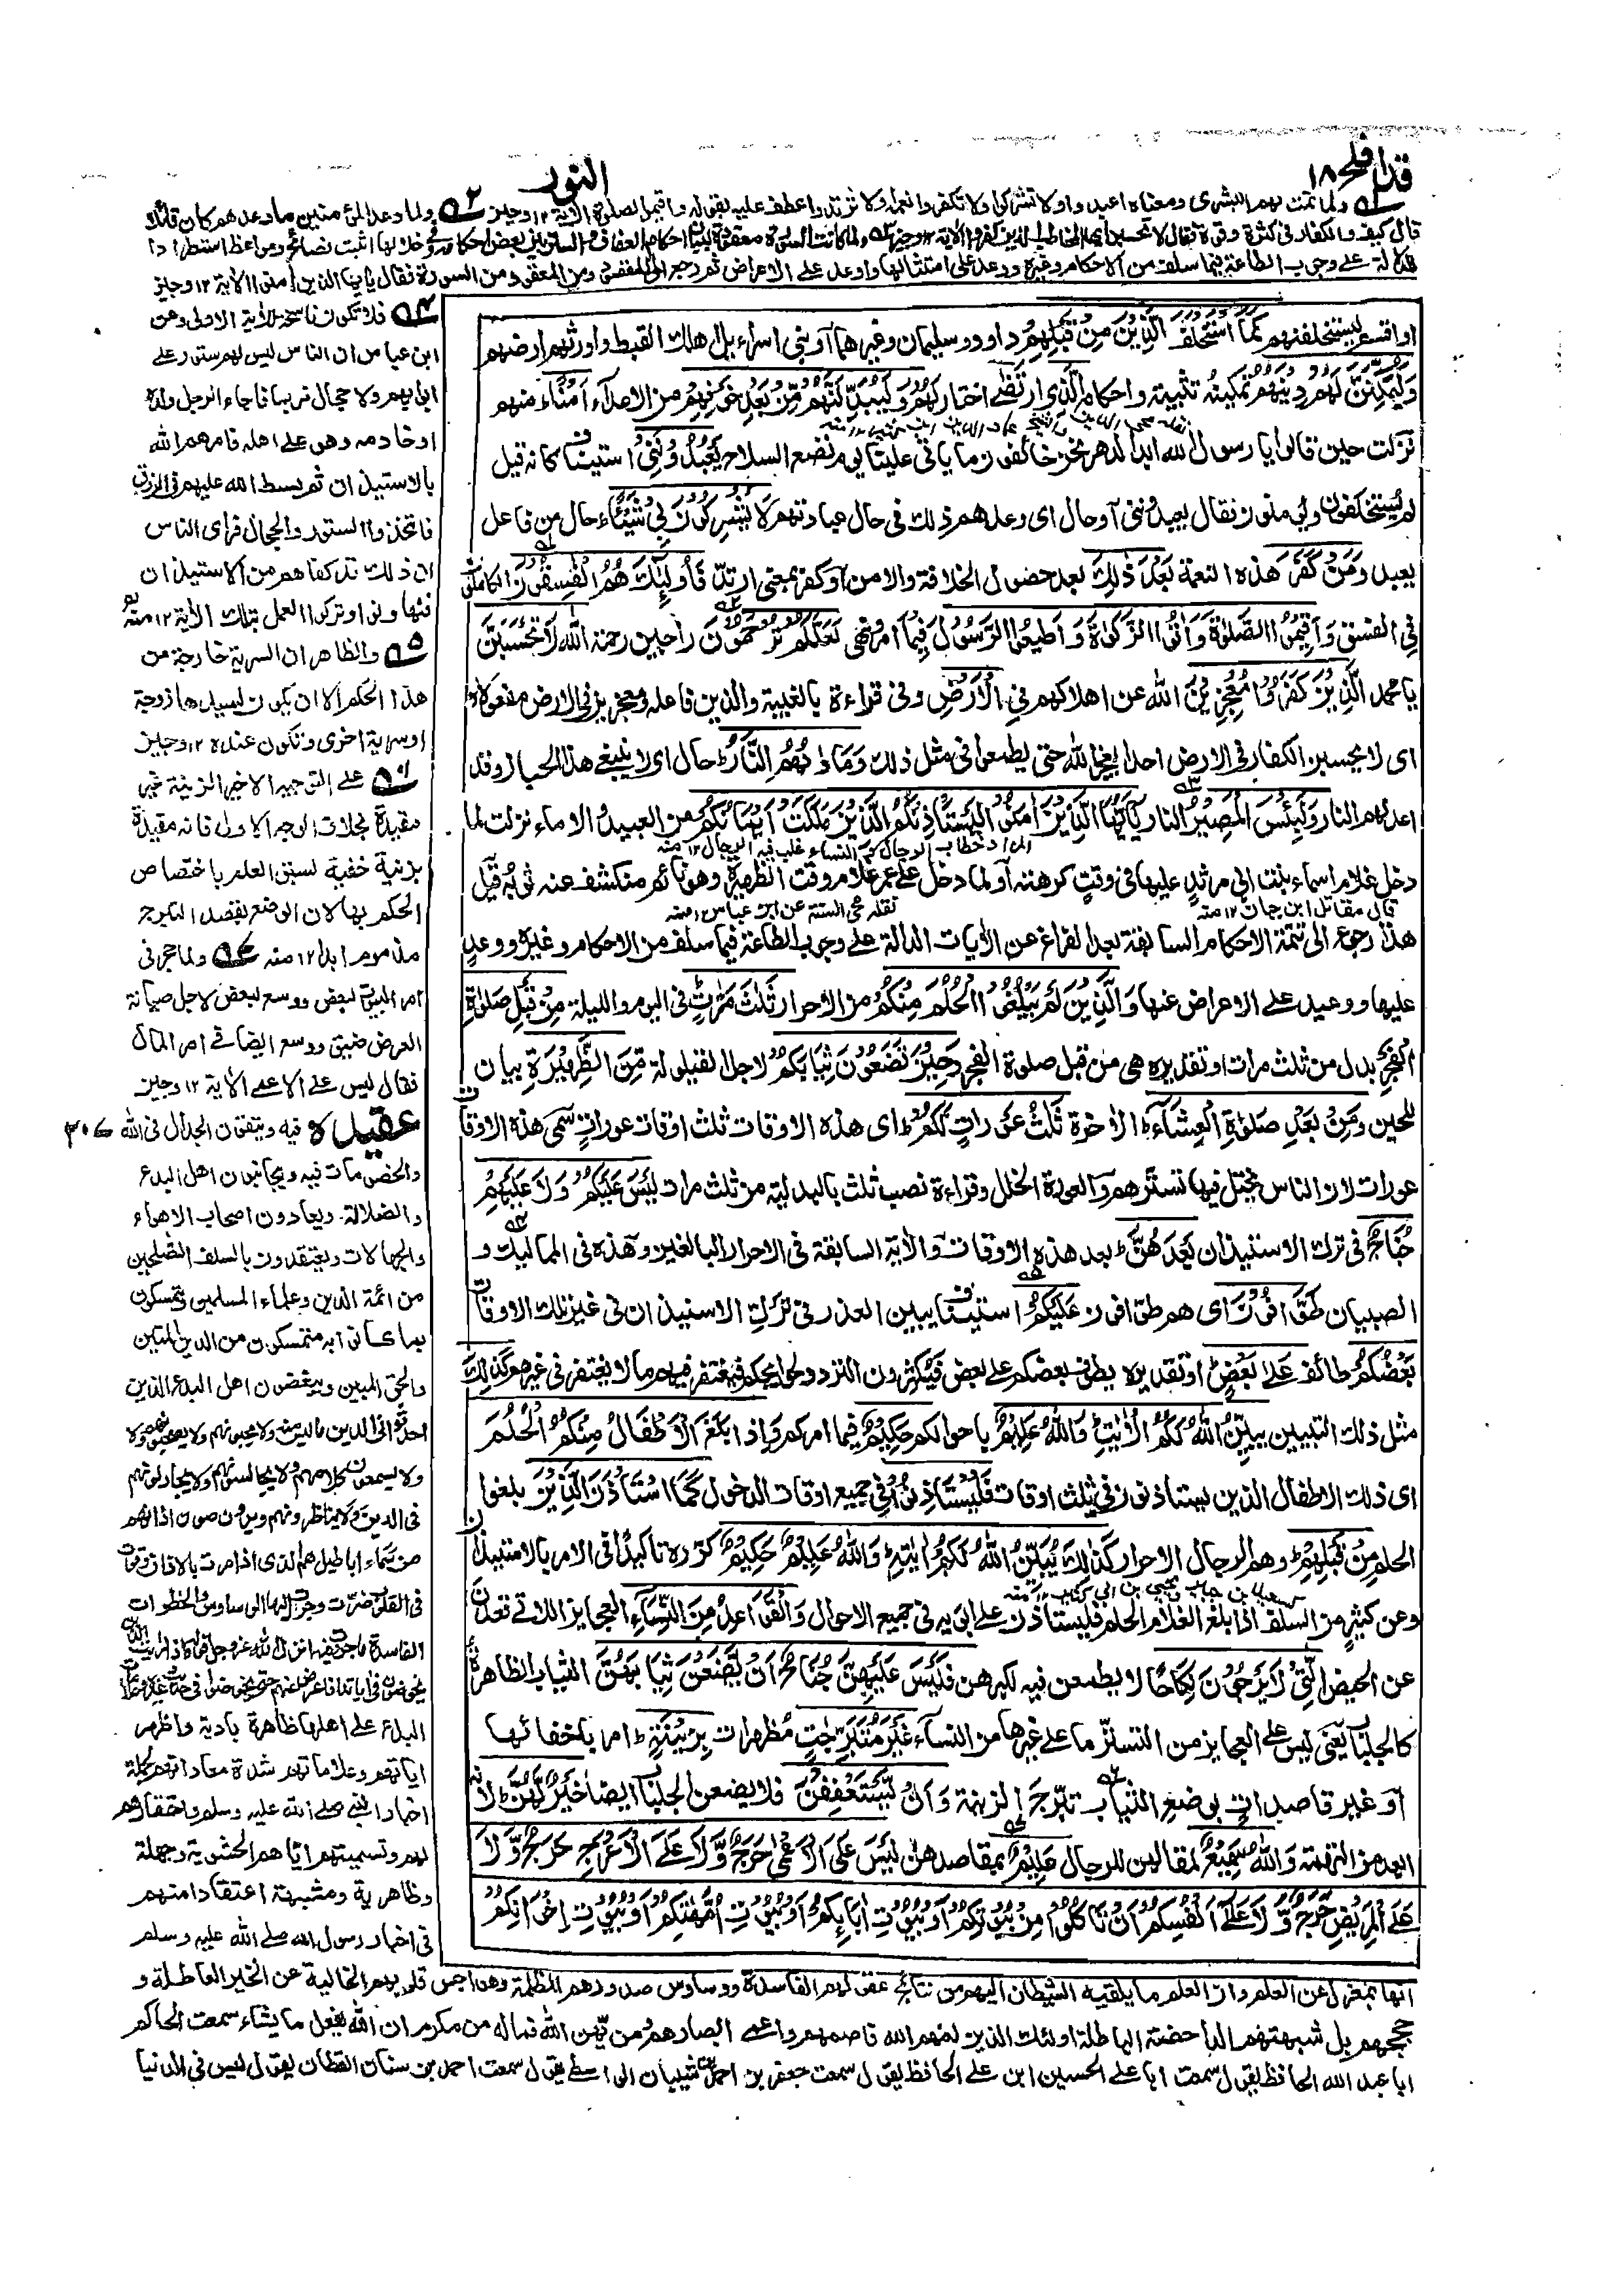 قد افلح ١٨
النور
ولما تمت لهم البشرى ومعناه اعبدوا ولا تشركوا ولا تكفروا نعمه ولا ترتدوا عطف عليه بقوله واقيموا الصلوة الاية ١٢ وجيز ولما وعد المؤمنين ما وعدهم كان قائلا
قال كيف والكفار فى كثرة وقوة فقال لا تحسبن ايها المخاطب الذين كفروا الاية ١٢ وجيز ولما كانت السورة معقودة لبيان احكام العفاف والستر بين بعض احكامه وخلالها اثبت نصائح ومواعظ استطرادا
دلالة على وجوب الطاعة فيما سلف من الاحكام وغيره ووعد على امتثالها واوعد على الاعراض ثم رجع الى المقصود من السورة فقال يايها الذين امنوا الاية ١٢ وجيز
او اقسم ليستخلفنهم كَمَا اسْتَخْلَفَ الَّذِيْنَ مِنْ قَبْلِهِمْ داوود وسليمان وغيرهما او بنى اسراءيل اهلك القبط واورثهم ارضهم
وَلَيُمَكِّنَنَّ لَهُمْ دِيْنَهُمْ تمكينه تثبيته واحكامه الَّذِي ارْتَضٰى اختار لَهُمْ وَلَيُبَدِّلَنَّهُمْ مِّنْ بَعْدِ خَوْفِهِمْ من الاعداء اَمْنًا منهم
نقله محيى الدين والشيخ عماد الدين ابن كثير ١٢ منه
نزلت حين قالوا يا رسول الله ابد الدهر نحن خائفون ما ياتى علينا يوم نضع السلاح يَعْبُدُوْنَنِيْ استيناف كانه قيل
لم يستخلفون ويؤمنون فقال يعبدوننى او حال اى وعدهم ذلك فى حال عبادتهم لَا يُشْرِكُوْنَ بِيْ شَيْئًا حال من فاعل
يعبد وَمَنْ كَفَرَ هذه النعمة بَعْدَ ذٰلِكَ بعد حصول الخلافة والامن او كفر بمعنى ارتد فَاُولٰٓئِكَ هُمُ الْفٰسِقُوْنَ الكاملون
فى الفسق وَاَقِيْمُوا الصَّلٰوةَ وَاٰتُوا الزَّكٰوةَ وَاَطِيْعُوا الرَّسُوْلَ فيما امر ونهى لَعَلَّكُمْ تُرْحَمُوْنَ راجين رحمة الله لَا تَحْسَبَنَّ
يا محمد الَّذِيْنَ كَفَرُوْا مُعْجِزِيْنَ الله عن اهلاكهم فِي الْاَرْضِ وفى قراءة يالغيبة والذين فاعله ومعجزين فى الارض مفعولاه
اى لا يحسبن الكفار فى الارض احدا يعجز الله حتى يطمعوا فى مثل ذلك وَمَاْوٰىهُمُ النَّارُ حال اى لا ينبغى هذا الحسبان وقد
اعد لهم النار وَلَبِئْسَ الْمَصِيْرُ النار يٰٓاَيُّهَا الَّذِيْنَ اٰمَنُوْا لِيَسْتَاْذِنْكُمُ الَّذِيْنَ مَلَكَتْ اَيْمَانُكُمْ من العبيد والاماء نزلت لما
المراد خطاب الرجال و النساء غلب فيه الرجال ١٢ منه
دخل غلام اسماء بنت ابى مرثد عليها فى وقت كرهته او لما دخل على عمر غلام وقت الظهيرة وهو نائم منكشف عنه ثوبه قيل
قال مقاتل ابن حيان ١٢ منه نقله محى السنة عن ابن عباس ١٢ منه
هذا رجوع الى تتمة الاحكام السابقة بعد الفراغ عن الايات الدالة على وجوب الطاعة فيما سلف من الاحكام وغيره ووعد
عليها ووعيد على الاعراض عنها وَالَّذِيْنَ لَمْ يَبْلُغُوا الْحُلُمَ مِنْكُمْ من الاحرار ثَلٰثَ مَرّٰتٍ فى اليوم والليلة مِنْ قَبْلِ صَلٰوةِ
الْفَجْرِ بدل من ثلث مرات او تقديره هى من قبل صلوة الفجر وَحِيْنَ تَضَعُوْنَ ثِيَابَكُمْ لاجل القيلولة مِّنَ الظَّهِيْرَةِ بيان
للحين وَمِنْ بَعْدِ صَلٰوةِ الْعِشَآءِ الاخرة ثَلٰثُ عَوْرَاتٍ لَّكُمْ اى هذه الاوقات ثلث اوقات عورات سمى هذه الاوقات
عورات لان الناس يختل فيها تسترهم والعورة الخلل وقراءة نصب ثلث بالبدلية من ثلث مرات لَيْسَ عَلَيْكُمْ وَلَا عَلَيْهِمْ
جُنَاحٌ فى ترك الاستيذان بَعْدَهُنَّ بعد هذه الاوقات والاية السابقة فى الاحرار البالغين وهذه فى المماليك و
الصبيان طَوّٰفُوْنَ اى هم طوافون عَلَيْكُمْ استيناف يبين العذر فى ترك الاستيذان فى غير تلك الاوقات
بَعْضُكُمْ طائف عَلٰى بَعْضٍ او تقديره يطوف بعضكم على بعض فيكثرون التردد فيغتفر فيهم ما لا يغتفر فى غيرهم كَذٰلِكَ
مثل ذلك التبيين يُبَيِّنُ اللّٰهُ لَكُمُ الْاٰيٰتِ وَاللّٰهُ عَلِيْمٌ باحوالكم حَكِيْمٌ فيما امركم وَاِذَا بَلَغَ الْاَطْفَالُ مِنْكُمُ الْحُلُمَ
اى ذلك الاطفال الذين يستاذنون فى ثلث اوقات فَلْيَسْتَاْذِنُوْا فى جميع اوقات الدخول كَمَا اسْتَاْذَنَ الَّذِيْنَ بلغوا
الحلم مِنْ قَبْلِهِمْ وهم الرجال الاحرار كَذٰلِكَ يُبَيِّنُ اللّٰهُ لَكُمْ اٰيٰتِهٖ وَاللّٰهُ عَلِيْمٌ حَكِيْمٌ كرره تاكيدا فى الامر بالاستيذان
يحيى بن ابى كثير ١٢ منه
وعن كثير من السلف اذا بلغ الغلام الحلم فليستاذن على ابويه فى جميع الاحوال وَالْقَوَاعِدُ مِنَ النِّسَآءِ العجايز اللاتى قعدن
عن الحيض الّٰتِيْ لَا يَرْجُوْنَ نِكَاحًا لا يطمعن فيه لكبرهن فَلَيْسَ عَلَيْهِنَّ جُنَاحٌ اَنْ يَّضَعْنَ ثِيَابَهُنَّ الثياب الظاهرة
كالجلباب يعنى ليس على العجايز من التستر ما على غيرها من النساء غَيْرَ مُتَبَرِّجٰتٍ مظهرات بِزِيْنَةٍ امر باخفائها
او غير قاصدات بوضع الثياب تبرج الزينة وَاَنْ يَّسْتَعْفِفْنَ فلا يضعن الجلباب ايضا خَيْرٌ لَّهُنَّ لانه
ابعد من التهمة وَاللّٰهُ سَمِيْعٌ لمقالهن للرجال عَلِيْمٌ بمقاصدهن لَيْسَ عَلَى الْاَعْمٰى حَرَجٌ وَّلَا عَلَى الْاَعْرَجِ حَرَجٌ وَّلَا
عَلَى الْمَرِيْضِ حَرَجٌ وَّلَا عَلٰٓى اَنْفُسِكُمْ اَنْ تَاْكُلُوْا مِنْ بُيُوْتِكُمْ اَوْ بُيُوْتِ اٰبَآئِكُمْ اَوْ بُيُوْتِ اُمَّهٰتِكُمْ اَوْ بُيُوْتِ اِخْوَانِكُمْ
فلا تكون ناسخة للاية الاولى وعن
ابن عباس ان الناس ليس لهم ستور على
ابوابهم ولا حجال فربما فاجاء الرجل ولده
او خادمه وهو على اهله فامرهم الله
بالاستيذان ثم بسط الله عليهم فى الرزق
فاتخذوا الستور والحجال فراى الناس
ان ذلك قد كفاهم من الاستيذان
فتهاونوا وتركوا العمل بتلك الاية ١٢ منه
والظاهر ان السرية خارجة من
هذا الحكم الا ان يكون لسيدها زوجة
او سرية اخرى وتكون عنده ١٢ وجيز
على التوجيه الاخير الزينة غير
مقيدة بخلاف الوجه الاول فانه مقيدة
بزينة خفية لسبق العلم باختصاص
الحكم بها لان الوضع بقصد التبرج
مذموم ابدا ١٢ منه ولما حجر فى
امر البيوت لبعض ووسع لبعض لاجل صيانة
العرض ضيق ووسع ايضا فى امر المال
فقال ليس على الاعمى الاية ١٢ وجيز
عقيدة فيه ويتقون الجدال فى الله ٣٠٧
والخصومات فيه ويجانبون اهل البدع
والضلالة ويعادون اصحاب الاهواء
والجهالات ويقتدون بالسلف الصالحين
من ائمة الدين وعلماء المسلمين ويتمسكون
بما كانوا به متمسكون من الدين المتين
والحق المبين ويبغضون اهل البدع الذين
احدثوا فى الدين ما ليس منه ولا يحبونهم ولا يصحبونهم
ولا يسمعون كلامهم ولا يجالسونهم ولا يجادلونهم
فى الدين ولا يناظرونهم ويرون صون اذانهم
عن سماع اباطيلهم التى اذا مرت بالاذان وقرت
فى القلوب ضرت وجرت اليها الوساوس والخطرات
الفاسدة وفيه انزل الله عز وجل قوله واذا رايت الذين
يخوضون فى اياتنا فاعرض عنهم حتى يخوضوا فى حديث غيره وعلامات
البدع على اهلها ظاهرة بادية واظهر
اياتهم وعلاماتهم شدة معاداتهم لحملة
اخبار النبى صلى الله عليه وسلم واحتقارهم
لهم وتسميتهم اياهم الحشوية وجهلة
وظاهرية ومشبهة اعتقادا منهم
فى اخبار رسول الله صلى الله عليه وسلم
انها بمعزل عن العلم وان العلم ما يلقيه الشيطان اليهم من نتائج عقولهم الفاسدة ووساوس صدورهم المظلمة وهواجس قلوبهم الخالية عن الخير العاطلة و
حججهم بل شبهتهم الداحضة الباطلة اولئك الذين لعنهم الله فاصمهم واعمى ابصارهم ومن يهن الله فما له من مكرم ان الله يفعل ما يشاء سمعت الحاكم
ابا عبد الله الحافظ يقول سمعت ابا على الحسين ابن على الحافظ يقول سمعت جعفر بن احمد بن سنان الواسطى يقول سمعت احمد بن سنان القطان يقول ليس فى الدنيا